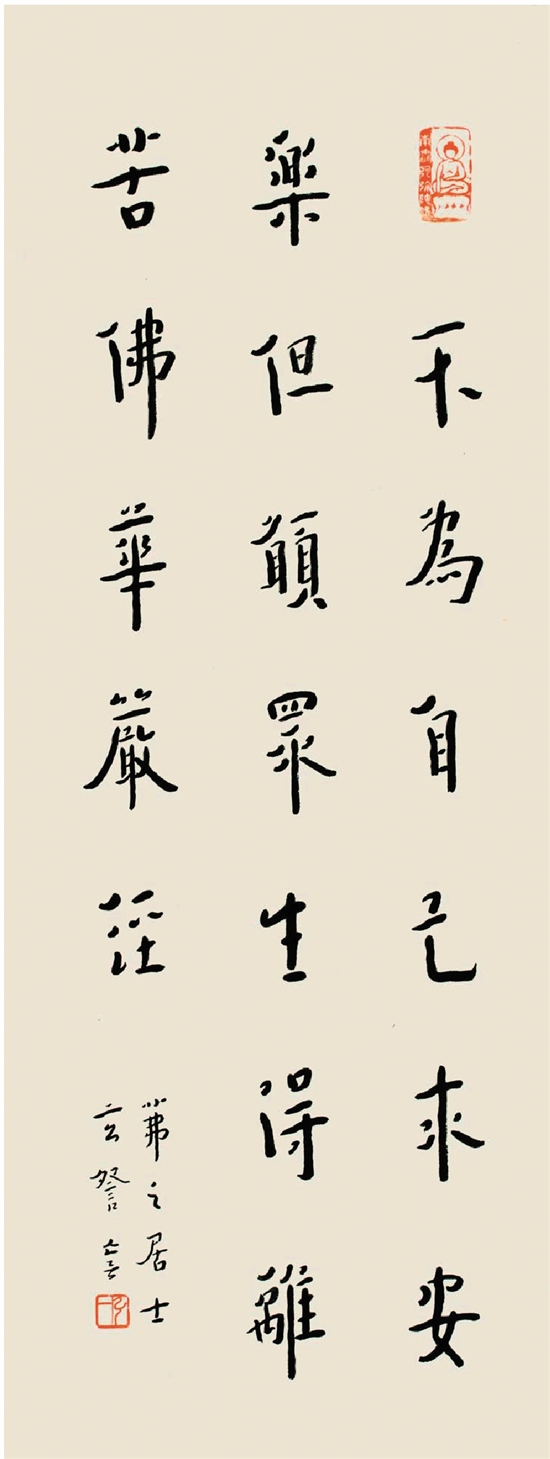 不為自己求安
樂但願眾生得離
苦佛華嚴經
茀之居士
弘一